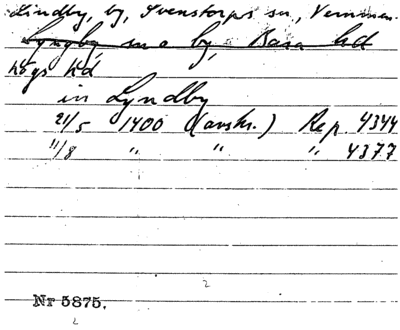 Lindby, by, Svenstorps sn, Vemmen-
Lyngby sn o by, Bara hd
högs hd
in Lyndby
21/5 1400 (avskr.) Rep. 4344
11/8 " " " 4377
Nr 5875.